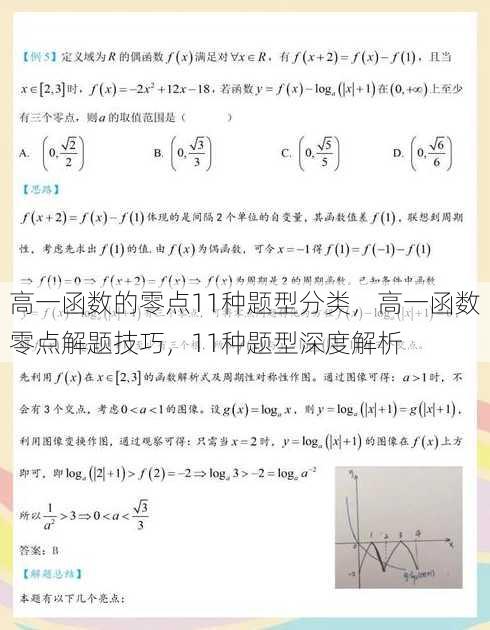 【例5】定义域为R的偶函数f(x)满足对∀x∈R，有f(x+2)=f(x)-f(1)，且当
x∈[2,3]时，f(x)=-2x²+12x-18，若函数y=f(x)-logₐ(|x|+1)在(0,+∞)上至少
有三个零点，则a的取值范围是（ ）
A. (0,√2/2) B. (0,√3/3) C. (0,√5/5) D. (0,√6/6)
【思路】
f(x+2)=f(x)-f(1)体现的是间隔2个单位的自变量，其函数值差f(1)，联想到周期
性，考虑先求出f(1)的值，由f(x)为偶函数，可令x=-1得f(1)=f(-1)-f(1)
⇒f(1)=0⇒f(x+2)=f(x)⇒f(x)为周期是2的周期函数。已知条件中函数
高一函数的零点11种题型分类，高一函数
零点解题技巧，11种题型深度解析
先利用f(x)在x∈[2,3]的函数解析式及周期性对称性作图。通过图像可得：a>1时，不
会有3个交点，考虑0<a<1的图像。设g(x)=logₐx，则y=logₐ(|x|+1)=g(|x|+1)，
利用图像变换作图，通过观察可得：只需当x=2时，y=logₐ(|x|+1)的图像在f(x)上方
即可，即logₐ(|2|+1)>f(2)=-2⇒logₐ3>-2=logₐa⁻²
所以1/a²>3⇒0<a<√3/3
1 2 3 4
答案：B
【解题总结】
本题有以下几个亮点：